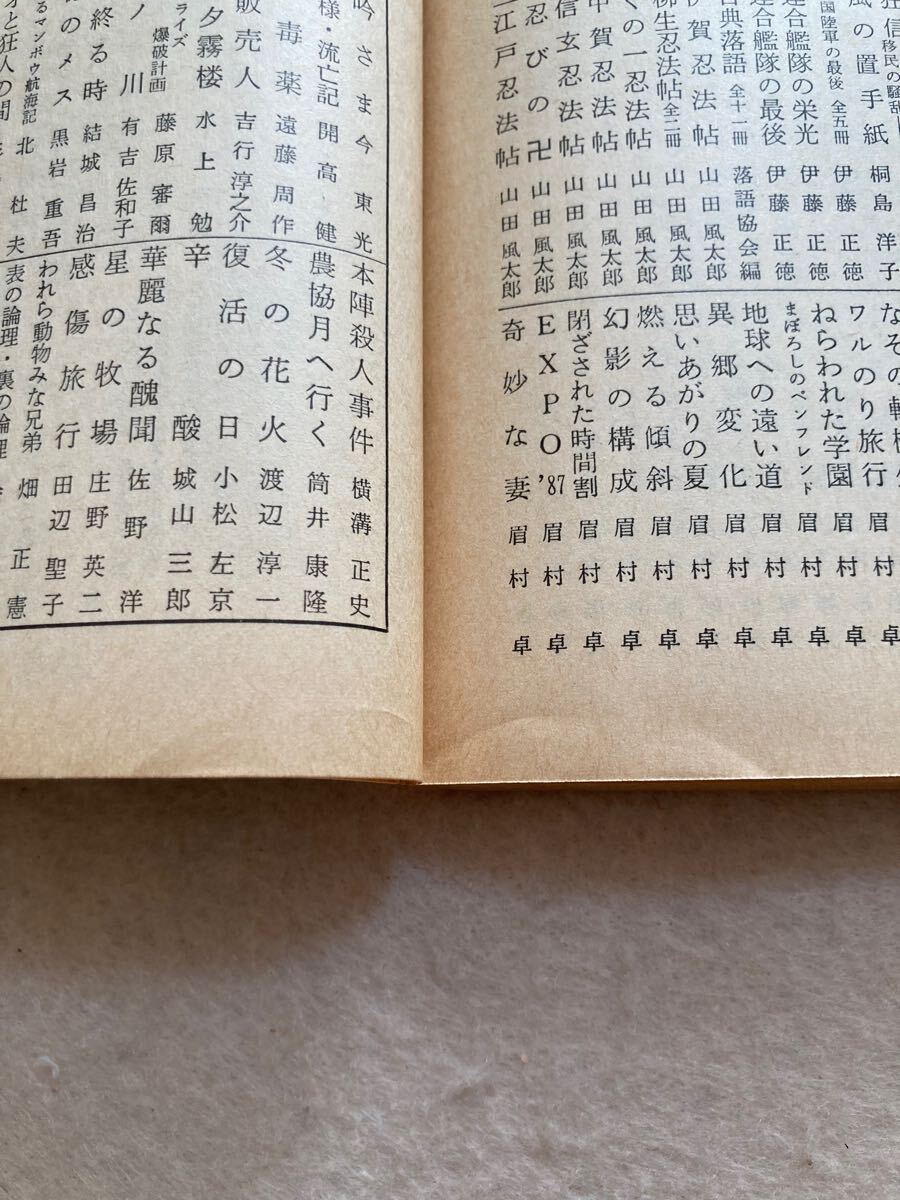 狂信 移民の騒乱
風の置手紙 桐島洋子
国陸軍の最後 全五冊 伊藤正徳
連合艦隊の栄光 伊藤正徳
連合艦隊の最後 伊藤正徳
古典落語 全十一冊 落語協会編
伊賀忍法帖 山田風太郎
柳生忍法帖 全二冊 山田風太郎
くの一忍法帖 山田風太郎
甲賀忍法帖 山田風太郎
信玄忍法帖 山田風太郎
忍びの卍 山田風太郎
江戸忍法帖 山田風太郎
なぞの転校生 眉村卓
ワルのり旅行 眉村卓
ねらわれた学園 眉村卓
まぼろしのペンフレンド 眉村卓
地球への遠い道 眉村卓
異郷変化 眉村卓
思いあがりの夏 眉村卓
燃える傾斜 眉村卓
幻影の構成 眉村卓
閉ざされた時間割 眉村卓
EXPO'87 眉村卓
奇妙な妻 眉村卓
吟さま 今東光
様・流亡記 開高健
毒薬 遠藤周作
販売人 吉行淳之介
夕霧楼 水上勉
ライズ爆破計画 藤原審爾
ノ川 有吉佐和子
終る時 結城昌治
のメス 黒岩重吾
るマンボウ航海記 北杜夫
才と狂人の間
本陣殺人事件 横溝正史
農協月へ行く 筒井康隆
冬の花火 渡辺淳一
復活の日 小松左京
辛酸 城山三郎
華麗なる醜聞 佐野洋
星の牧場 庄野英二
感傷旅行 田辺聖子
われら動物みな兄弟 畑正憲
表の論理・裏の論理